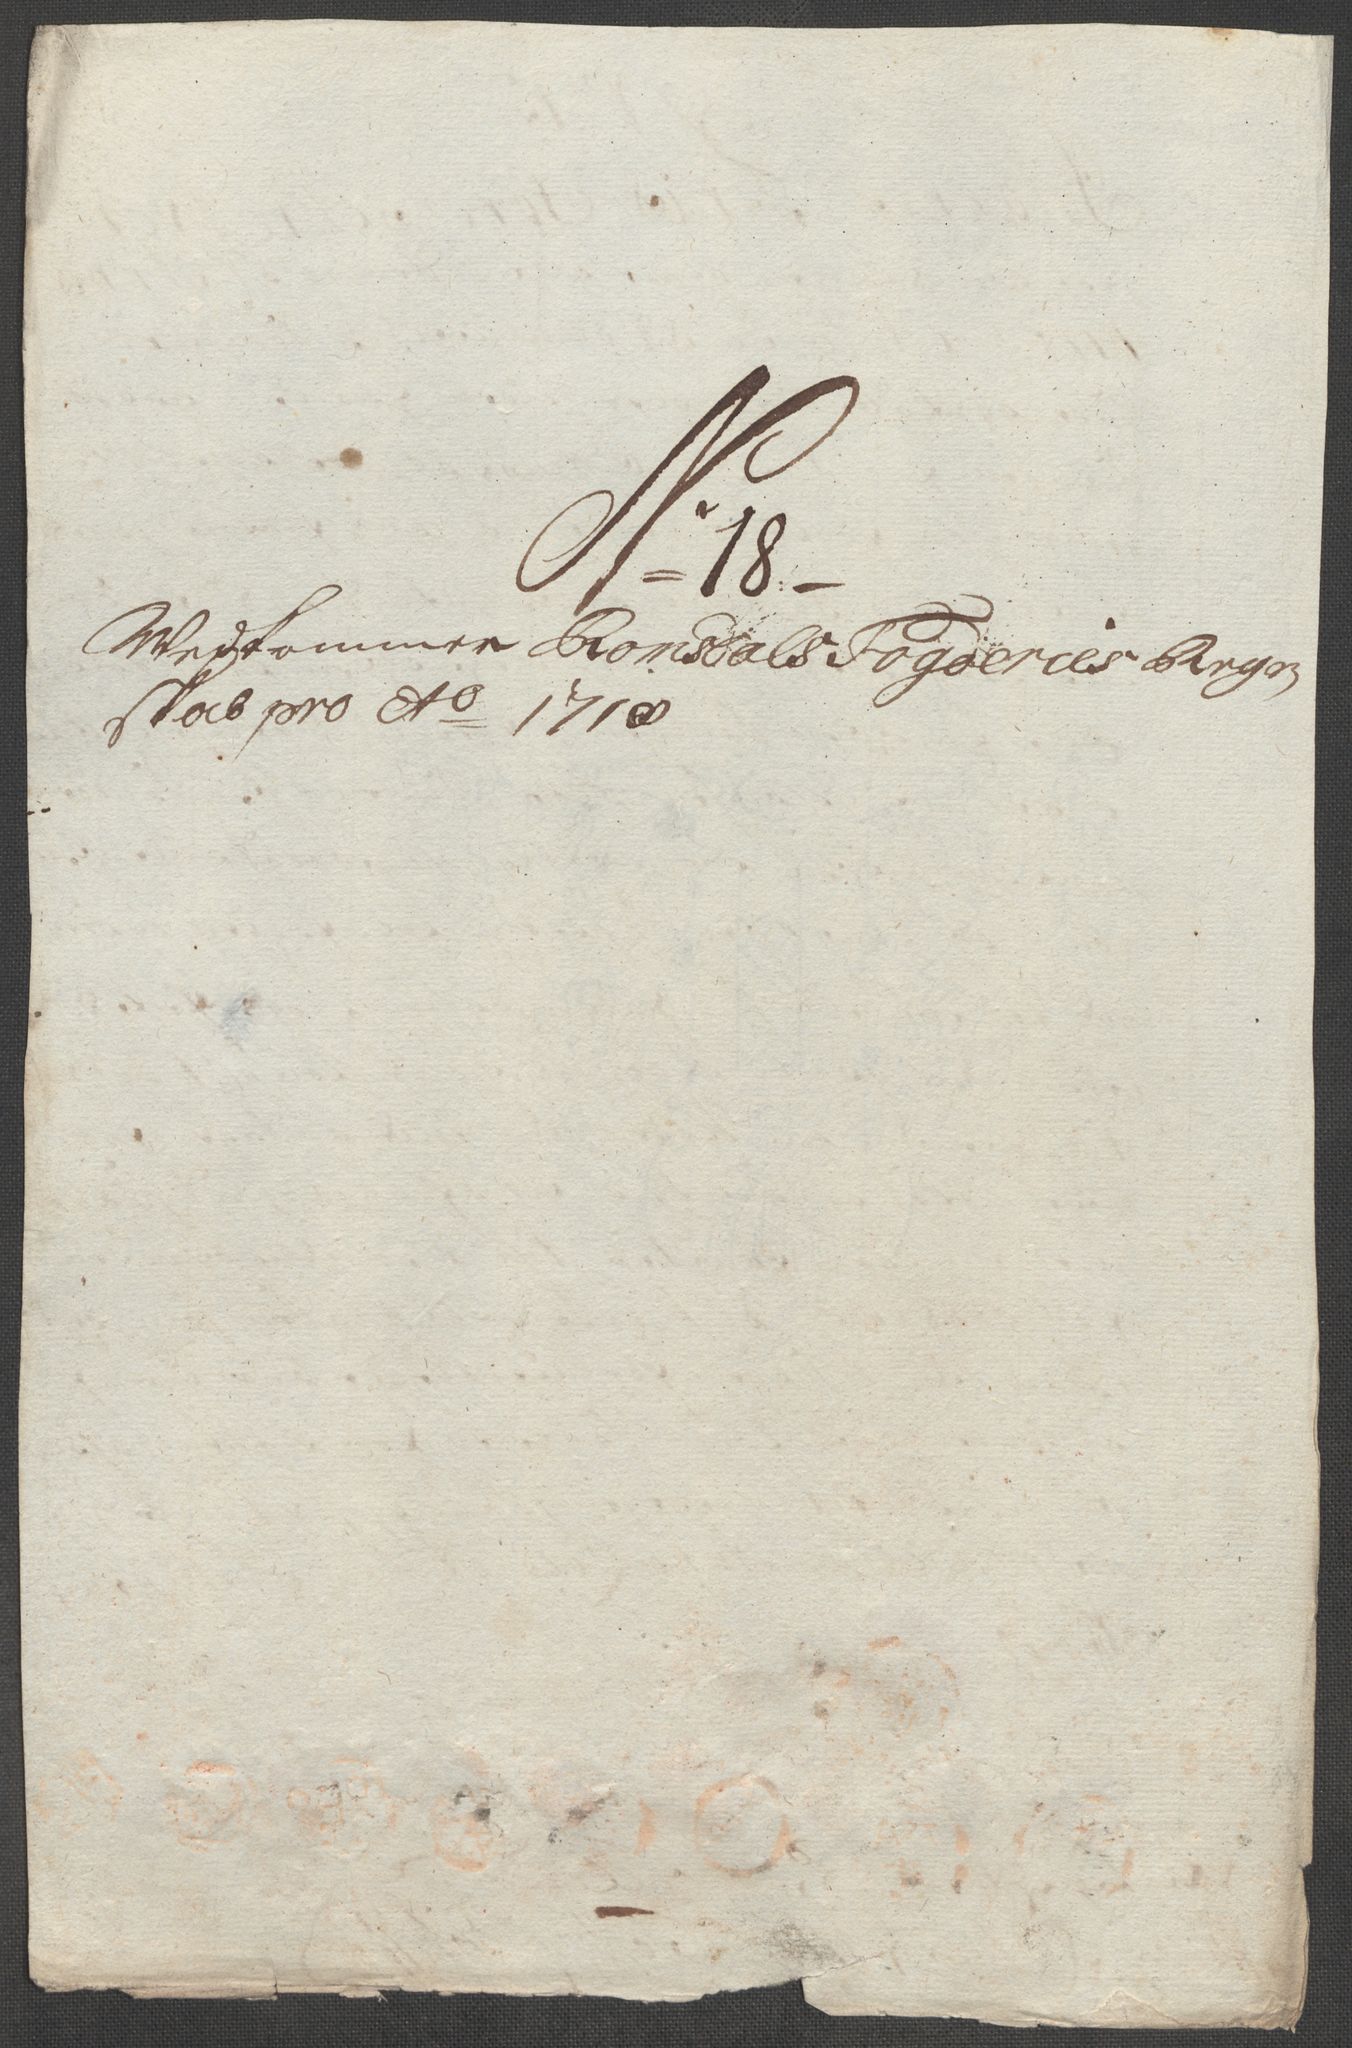 N: 18 -
Vedkommer Romsdals Fogderies Regn
skab pro Ao 1718